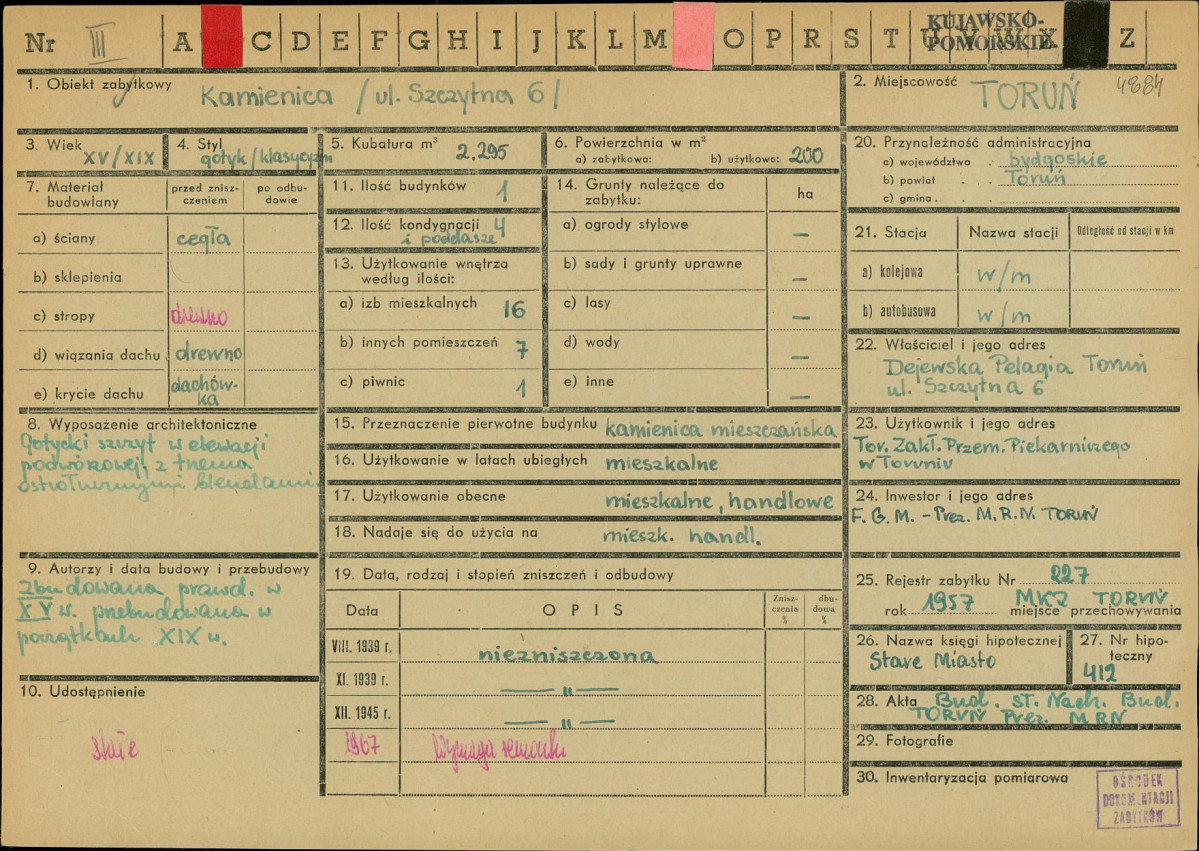 Nr III A C D E F G H I J K L M O P R S T U V W X Z
KUJAWSKO-
POMORSKIE
1. Obiekt zabytkowy Kamienica / ul. Szczytna 6/
2. Miejscowość TORUŃ 4884
3. Wiek XV/XIX
4. Styl gotyk/klasycyzm
5. Kubatura m³ 2.295
6. Powierzchnia w m²
a) zabytkowa: b) użytkowa: 200
20. Przynależność administracyjna
a) województwo bydgoskie
b) powiat Toruń
c) gmina
7. Materiał budowlany
przed zniszczeniem
po odbudowie
a) ściany cegła
b) sklepienia
c) stropy drewno
d) wiązania dachu drewno
e) krycie dachu dachów-
ka
11. Ilość budynków 1
12. Ilość kondygnacji 4
i poddasze
13. Użytkowanie wnętrza
według ilości:
a) izb mieszkalnych 16
b) innych pomieszczeń 7
c) piwnic 1
14. Grunty należące do
zabytku:
ha
a) ogrody stylowe —
b) sady i grunty uprawne —
c) lasy —
d) wody —
e) inne —
21. Stacja Nazwa stacji Odległość od stacji w km
a) kolejowa w/m
b) autobusowa w/m
22. Właściciel i jego adres
Dejewska Pelagia Toruń
ul. Szczytna 6
8. Wyposażenie architektoniczne
Gotycki szczyt w elewacji
podwórzowej, z trzema
ostrołucznymi blendami.
15. Przeznaczenie pierwotne budynku kamienica mieszczańska
16. Użytkowanie w latach ubiegłych mieszkalne
17. Użytkowanie obecne mieszkalne, handlowe
18. Nadaje się do użycia na mieszk. handl.
23. Użytkownik i jego adres
Tor. Zakł. Przem. Piekarniczego
w Toruniu
24. Inwestor i jego adres
F. G. M. - Prez. M. R. N. TORUŃ
9. Autorzy i data budowy i przebudowy
Zbudowana prawd. w
XV w. przebudowana w
początkach XIX w.
19. Data, rodzaj i stopień zniszczeń i odbudowy
Data OPIS Zniszczenia % dbudowa %
VIII. 1939 r. niezniszczona
XI. 1939 r. — " —
XII. 1945 r. — " —
1967 Wymaga remontu
25. Rejestr zabytku Nr 227
rok 1957 MKZ TORUŃ
miejsce przechowywania
26. Nazwa księgi hipotecznej
Stare Miasto
27. Nr hipo-
teczny
412
10. Udostępnienie
stałe
28. Akta Bud. St. Nach. Bud.
TORUŃ Prez. MRN
29. Fotografie
30. Inwentaryzacja pomiarowa
OŚRODEK
DOKUMENTACJI
ZABYTKÓW